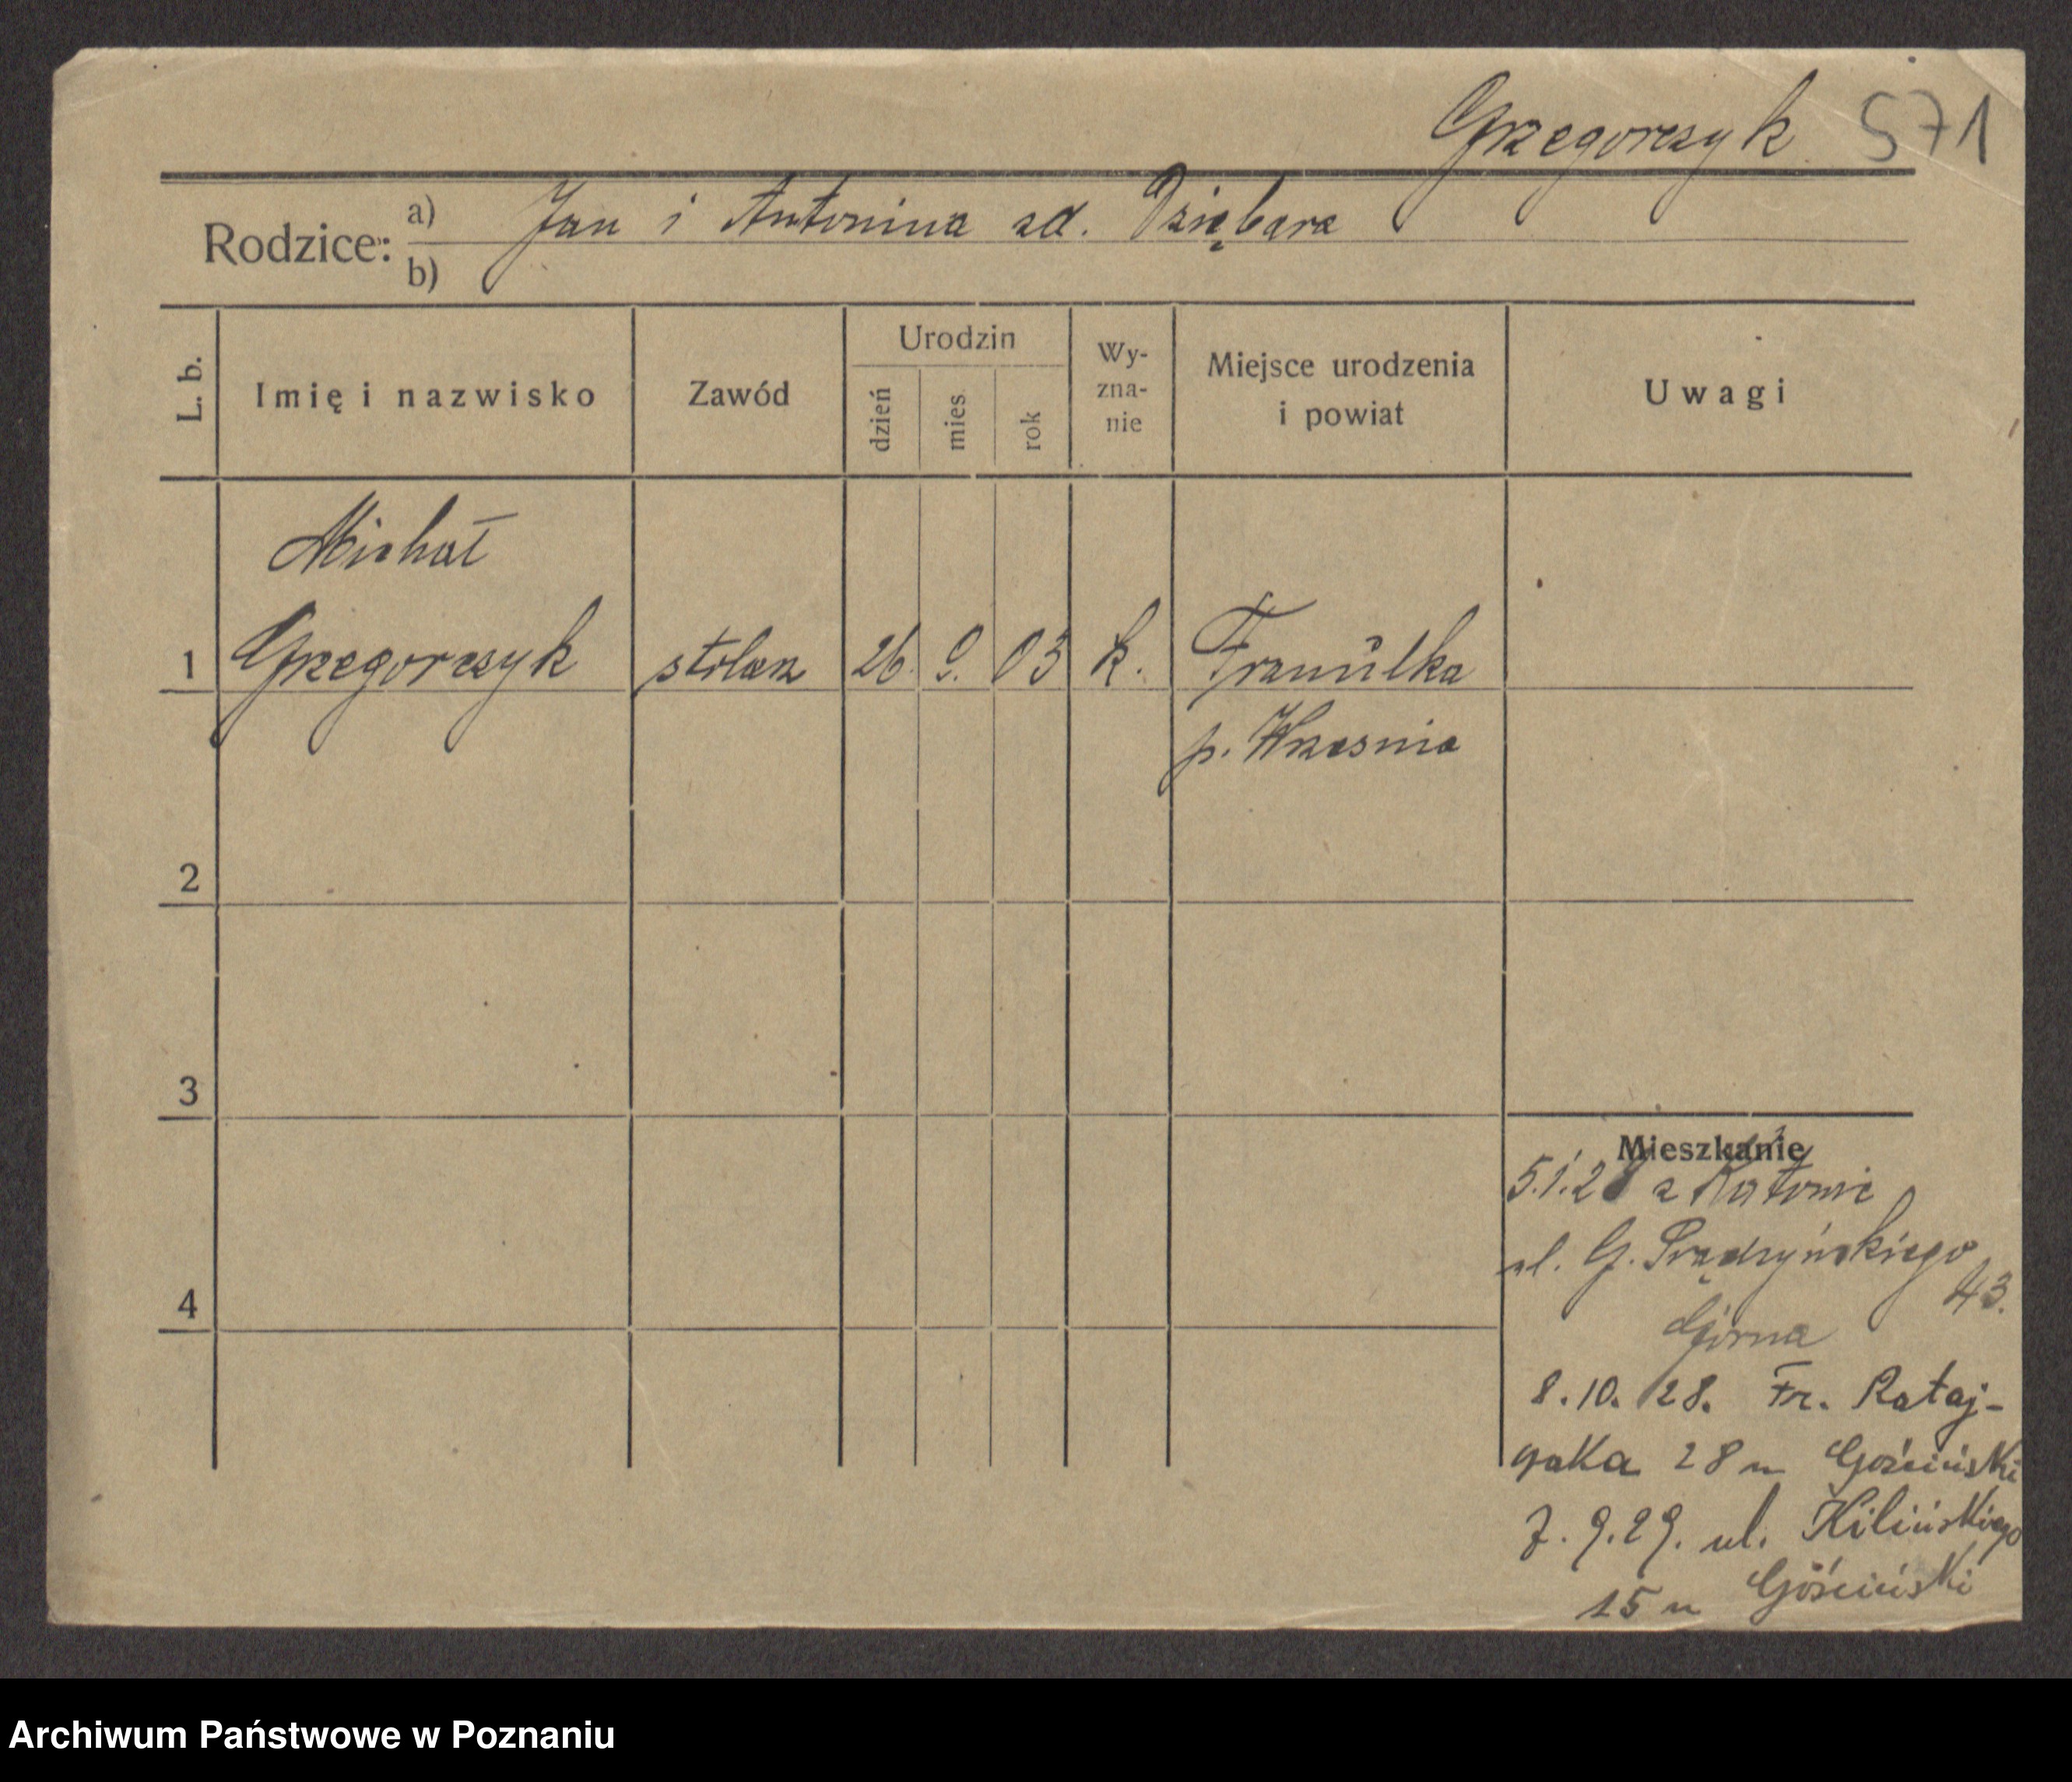 Grzegorczyk 571
Rodzice: a) Jan i Antonina zd. Dziębara
b)
L. b. Imię i nazwisko Zawód Urodzin dzień mies. rok Wy-zna-nie Miejsce urodzenia i powiat Uwagi
Michał
1 Grzegorczyk stolarz 26. 9. 03 k.
p. Września
2
3
Mieszkanie
5.1.28 z
ul. G. Prądzyńskiego
43.
4
Górna
8.10.28. Fr. Rataj-
czaka 28 u Gościński
7.9.29. ul. Kilińskiego
15 u Gościński
Archiwum Państwowe w Poznaniu